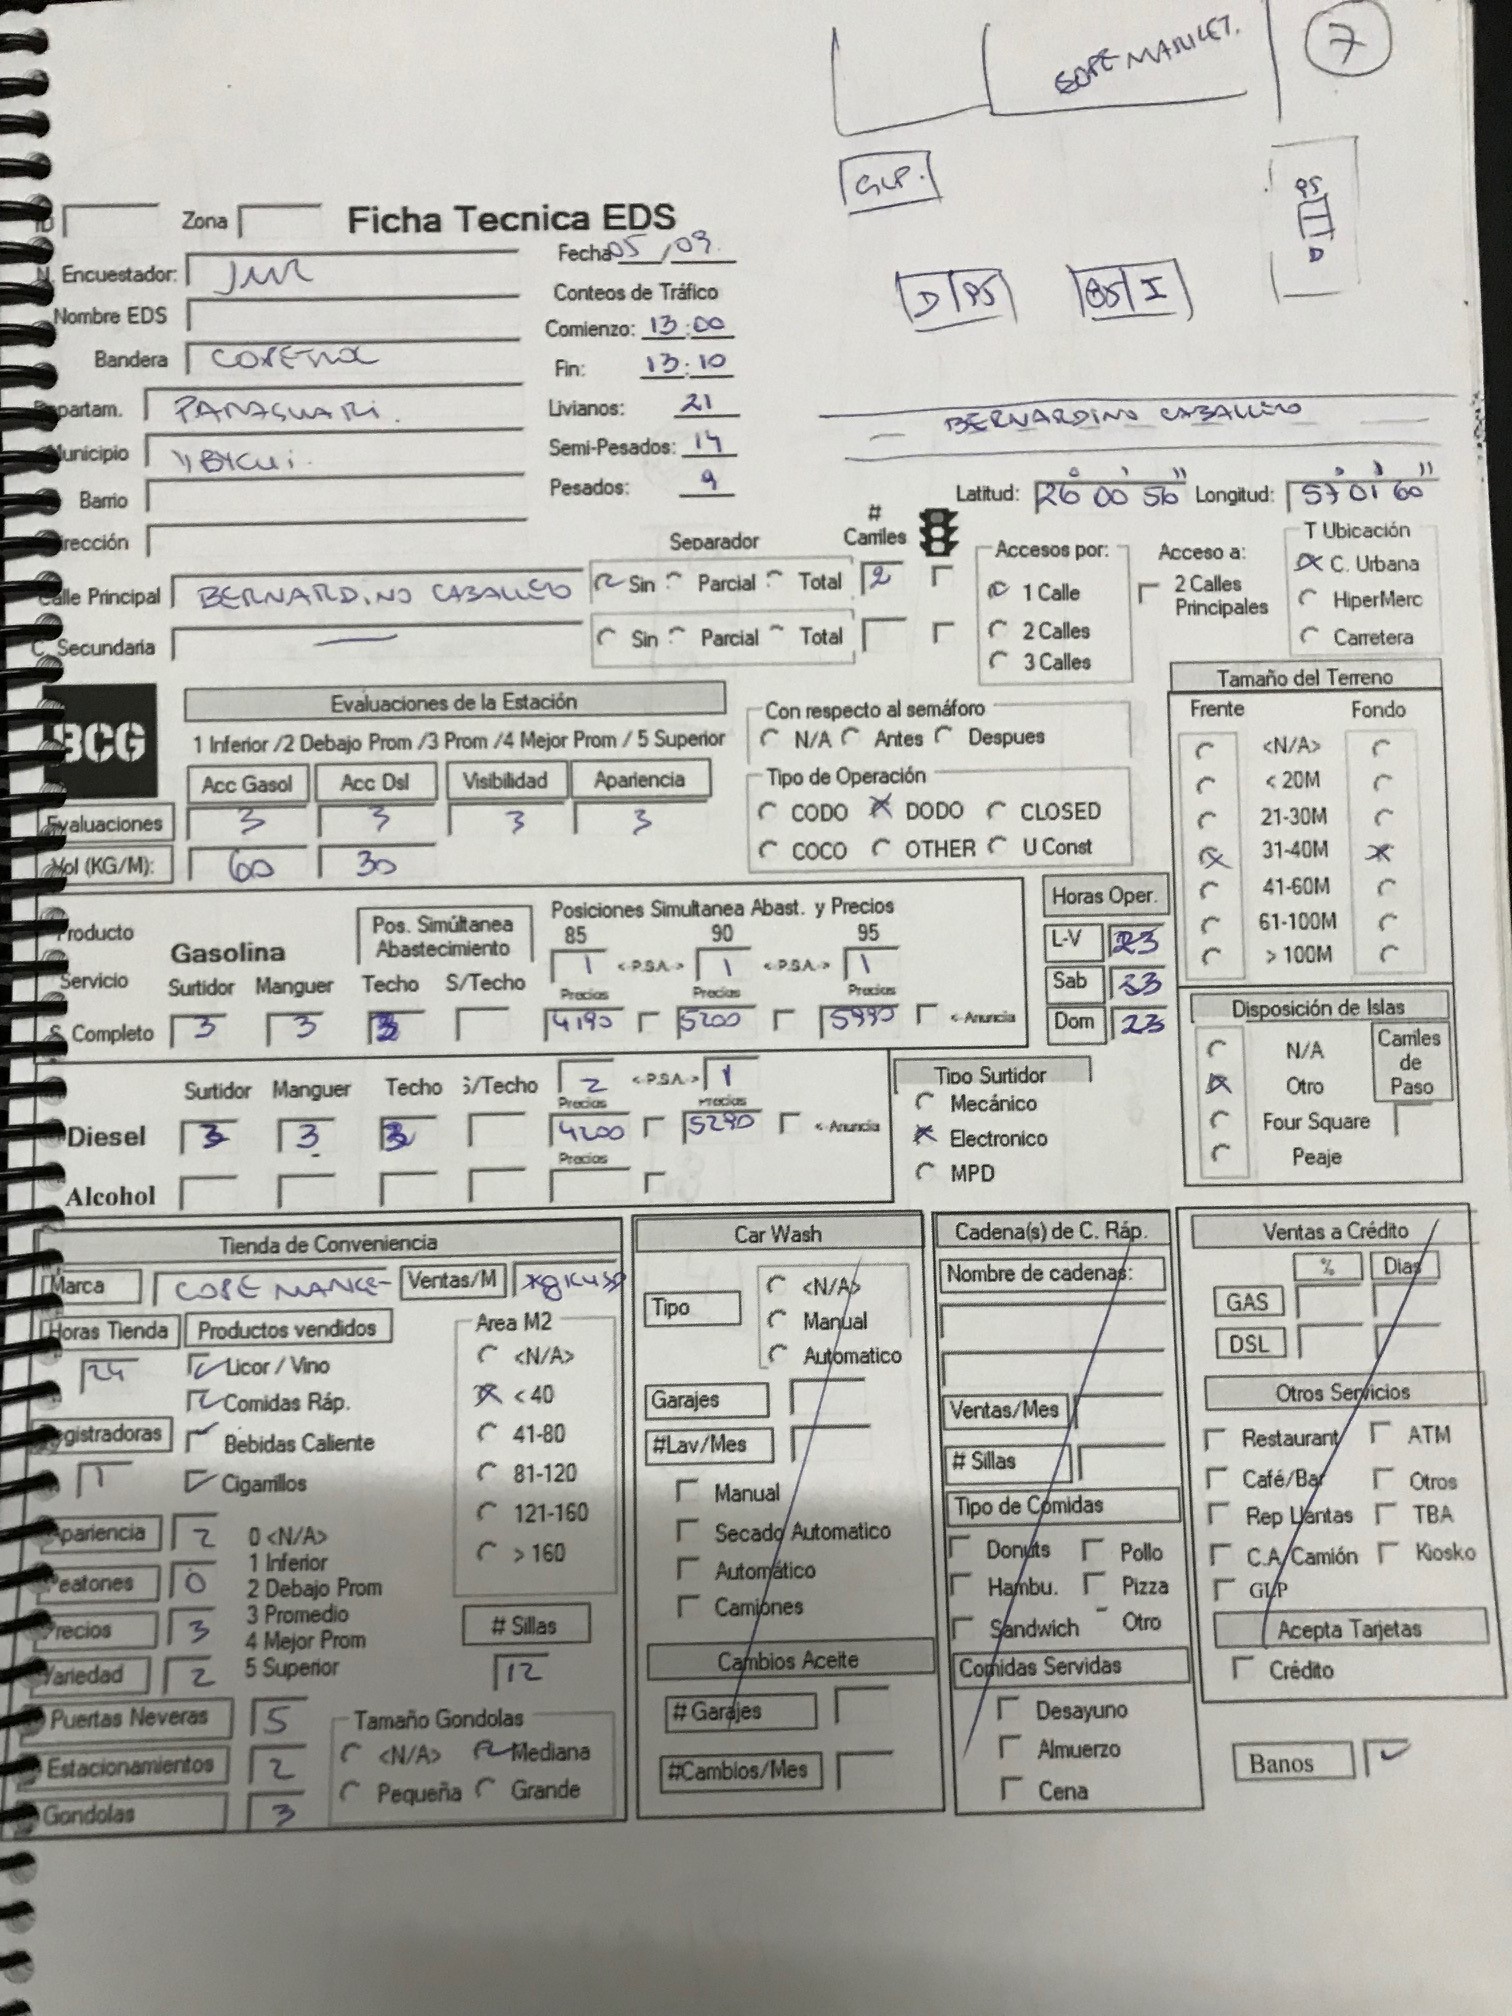 COPE MARKET.
7
GLP.
95
D
D 95
85 I
BERNARDINO CABALLERO
ID Zona Ficha Tecnica EDS
Fecha 05/09
N. Encuestador: JMR
Nombre EDS
Conteos de Tráfico
Comienzo: 13:00
Bandera COPETROL
Fin: 13:10
Departam. PARAGUARI.
Livianos: 21
Municipio YBYCUI.
Semi-Pesados: 14
Barrio
Pesados: 9
Latitud: 26° 00' 56" Longitud: 57° 01' 60"
Dirección
Separador
# Carriles
Accesos por:
Acceso a:
T Ubicación
Calle Principal BERNARDINO CABALLERO
Sin Parcial Total 2
1 Calle
2 Calles
3 Calles
2 Calles Principales
C. Urbana
HiperMerc
Carretera
C. Secundaria —
Sin Parcial Total
BCG
Evaluaciones de la Estación
1 Inferior /2 Debajo Prom /3 Prom /4 Mejor Prom / 5 Superior
Acc Gasol Acc Dsl Visibilidad Apariencia
Evaluaciones 3 3 3 3
Vol (KG/M): 60 30
Con respecto al semáforo
N/A Antes Despues
Tipo de Operación
CODO DODO CLOSED
COCO OTHER U Const
Tamaño del Terreno
Frente Fondo
<N/A>
< 20M
21-30M
31-40M
41-60M
61-100M
> 100M
Producto
Servicio
Gasolina
Pos. Simúltanea Abastecimiento
Posiciones Simultanea Abast. y Precios
85 90 95
1 <-P.S.A.-> 1 <-P.S.A.-> 1
Surtidor Manguer Techo S/Techo
Precios Precios Precios
S. Completo 3 3 3 4190 5200 5990 <-Anuncia
Horas Oper.
L-V 23
Sab 23
Dom 23
Disposición de Islas
N/A
Otro
Four Square
Peaje
Carriles de Paso
Surtidor Manguer Techo S/Techo 2 <-P.S.A.-> 1
Precios Precios
Diesel 3 3 3 4200 5290 <-Anuncia
Precios
Alcohol
Tipo Surtidor
Mecánico
Electronico
MPD
Tienda de Conveniencia
Marca COPE MARKET Ventas/M
Horas Tienda Productos vendidos
24
Licor / Vino
Comidas Ráp.
Registradoras
1
Bebidas Caliente
Cigarrillos
Area M2
<N/A>
< 40
41-80
81-120
121-160
> 160
Apariencia 2
Peatones 0
Precios 3
Variedad 2
0 <N/A>
1 Inferior
2 Debajo Prom
3 Promedio
4 Mejor Prom
5 Superior
# Sillas
12
Puertas Neveras 5
Estacionamientos 2
Gondolas 3
Tamaño Gondolas
<N/A> Mediana
Pequeña Grande
Car Wash
Tipo
<N/A>
Manual
Automatico
Garajes
#Lav/Mes
Manual
Secado Automatico
Automático
Camiones
Cambios Aceite
# Garajes
#Cambios/Mes
Cadena(s) de C. Ráp.
Nombre de cadenas:
Ventas/Mes
# Sillas
Tipo de Comidas
Donuts Pollo
Hambu. Pizza
Sandwich Otro
Comidas Servidas
Desayuno
Almuerzo
Cena
Ventas a Crédito
% Dias
GAS
DSL
Otros Servicios
Restaurant ATM
Café/Bar Otros
Rep Llantas TBA
C.A. Camión Kiosko
GLP
Acepta Tarjetas
Crédito
Banos